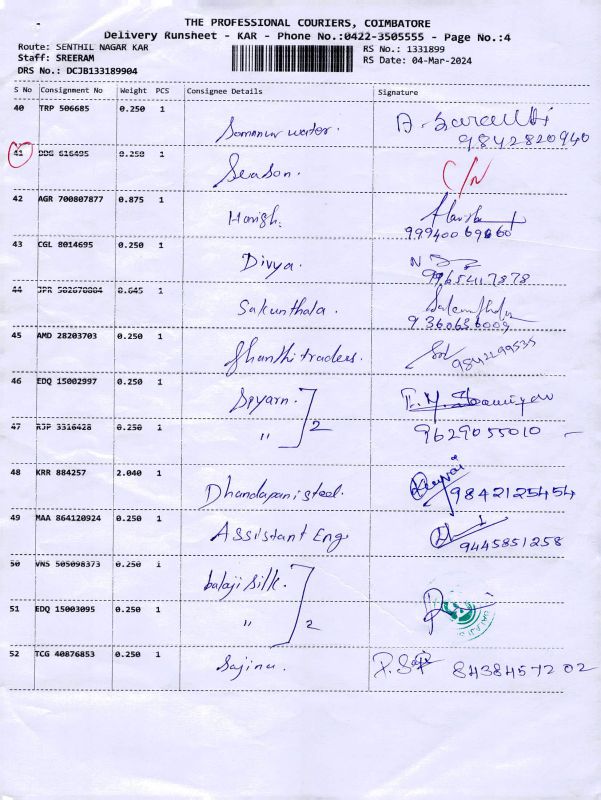 THE PROFESSIONAL COURIERS, COIMBATORE
Delivery Runsheet - KAR - Phone No.:0422-3505555 - Page No.:4
Route: SENTHIL NAGAR KAR RS No.: 1331899
Staff: SREERAM RS Date: 04-Mar-2024
DRS No.: DCJB133189904
S No Consignment No Weight PCS Consignee Details Signature
40 TRP 506685 0.250 1 water. 9842820940
41 616495 0.250 1 Season. C/N
42 AGR 700807877 0.875 1 Harish. 9994006960
43 CGL 8014695 0.250 1 Divya. 9965417878
44 JPR 0.645 1 Sakunthala. 9360656009
45 AMD 28203703 0.250 1 Shanthi traders. 9842299535
46 EDQ 15002997 0.250 1
47 RJP 3316428 0.250 1 " 2 9629055010
48 KRR 884257 2.040 1 Dhandapani steel. 9842125454
49 MAA 864120924 0.250 1 Assistant Eng. 9445851258
50 VNS 505098373 0.250 1 balaji silk.
51 EDQ 15003095 0.250 1 " 2
52 TCG 40876853 0.250 1 Sajina. 8438457202